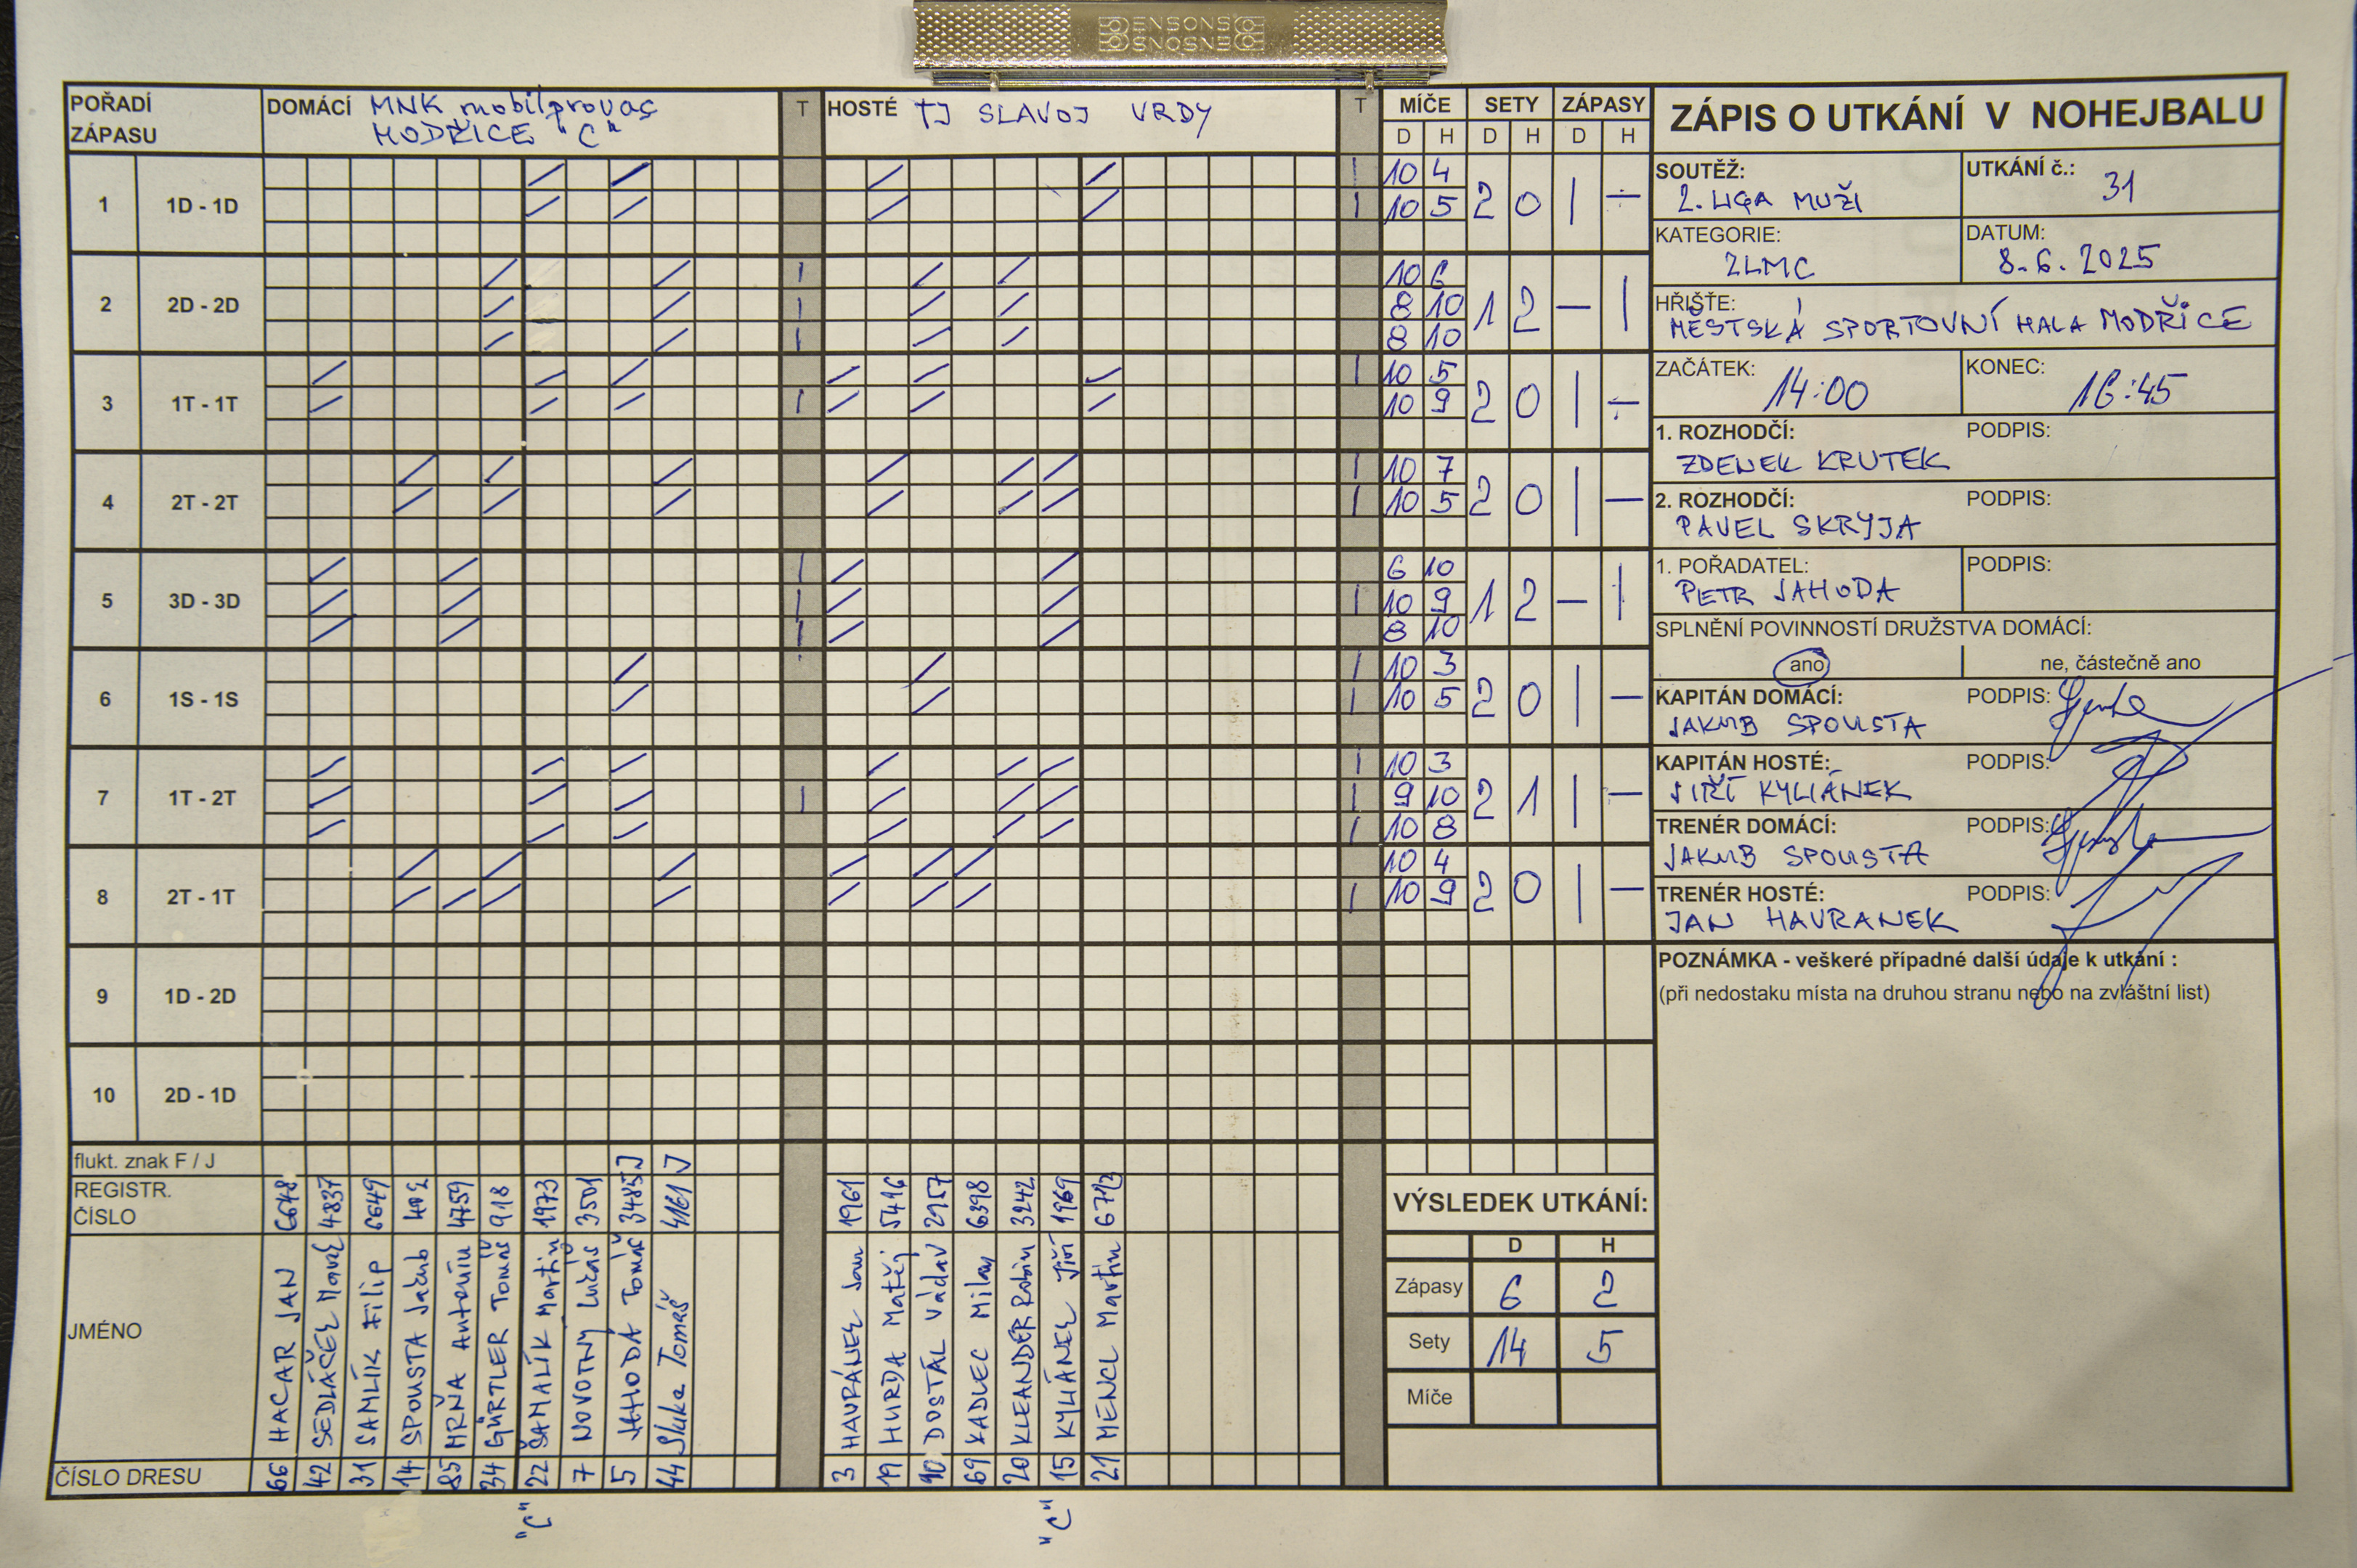 ENSONS
POŘADÍ ZÁPASU
DOMÁCÍ MNK mobilprovas MODŘICE "C"
T
HOSTÉ TJ SLAVOJ VRDY
T
MÍČE SETY ZÁPASY
D H D H D H
1 1D - 1D 10 4 2 0 | —
10 5
2 2D - 2D 10 6 1 2 — |
8 10
8 10
3 1T - 1T 10 5 2 0 | —
10 9
4 2T - 2T 10 7 2 0 | —
10 5
5 3D - 3D 6 10 1 2 — |
10 9
8 10
6 1S - 1S 10 3 2 0 | —
10 5
7 1T - 2T 10 3 2 1 | —
9 10
10 8
8 2T - 1T 10 4 2 0 | —
10 9
9 1D - 2D
10 2D - 1D
flukt. znak F / J
REGISTR. ČÍSLO
JMÉNO
ČÍSLO DRESU
66 HACAR JAN 6648
42 SEDLÁČEK Marek 4837
31 SAMLÍK Filip 6649
14 SPOUSTA Jakub
85 MRŇA Antonín 4759
34 GÜRTLER Tomáš 918
22 ŠAMALÍK Martin 1973
"C"
7 NOVOTNÝ Lukáš 3501
5 JAHODA Tomáš 3485 J
44 Sluka Tomáš 4161 J
3 HAVRÁNEK Jan 1961
19 HURDA Matěj 5416
10 DOSTÁL Václav 2957
69 KADLEC Milan 6398
20 KLEANDER Robin 3242
15 KYLIÁNEK Jiří 1969
"C"
21 MENCL Martin 6713
VÝSLEDEK UTKÁNÍ:
D H
Zápasy 6 2
Sety 14 5
Míče
ZÁPIS O UTKÁNÍ V NOHEJBALU
SOUTĚŽ: 2. LIGA MUŽI
UTKÁNÍ č.: 31
KATEGORIE: 2LMC
DATUM: 8.6.2025
HŘIŠTĚ:
MĚSTSKÁ SPORTOVNÍ HALA MODŘICE
ZAČÁTEK: 14:00
KONEC: 16:45
1. ROZHODČÍ: PODPIS:
ZDENEK KRUTEK
2. ROZHODČÍ: PODPIS:
PAVEL SKRYJA
1. POŘADATEL: PODPIS:
PETR JAHODA
SPLNĚNÍ POVINNOSTÍ DRUŽSTVA DOMÁCÍ:
ano ne, částečně ano
KAPITÁN DOMÁCÍ: PODPIS:
JAKUB SPOUSTA
KAPITÁN HOSTÉ: PODPIS:
JIŘÍ KYLIÁNEK
TRENÉR DOMÁCÍ: PODPIS:
JAKUB SPOUSTA
TRENÉR HOSTÉ: PODPIS:
JAN HAVRANEK
POZNÁMKA - veškeré případné další údaje k utkání :
(při nedostaku místa na druhou stranu nebo na zvláštní list)